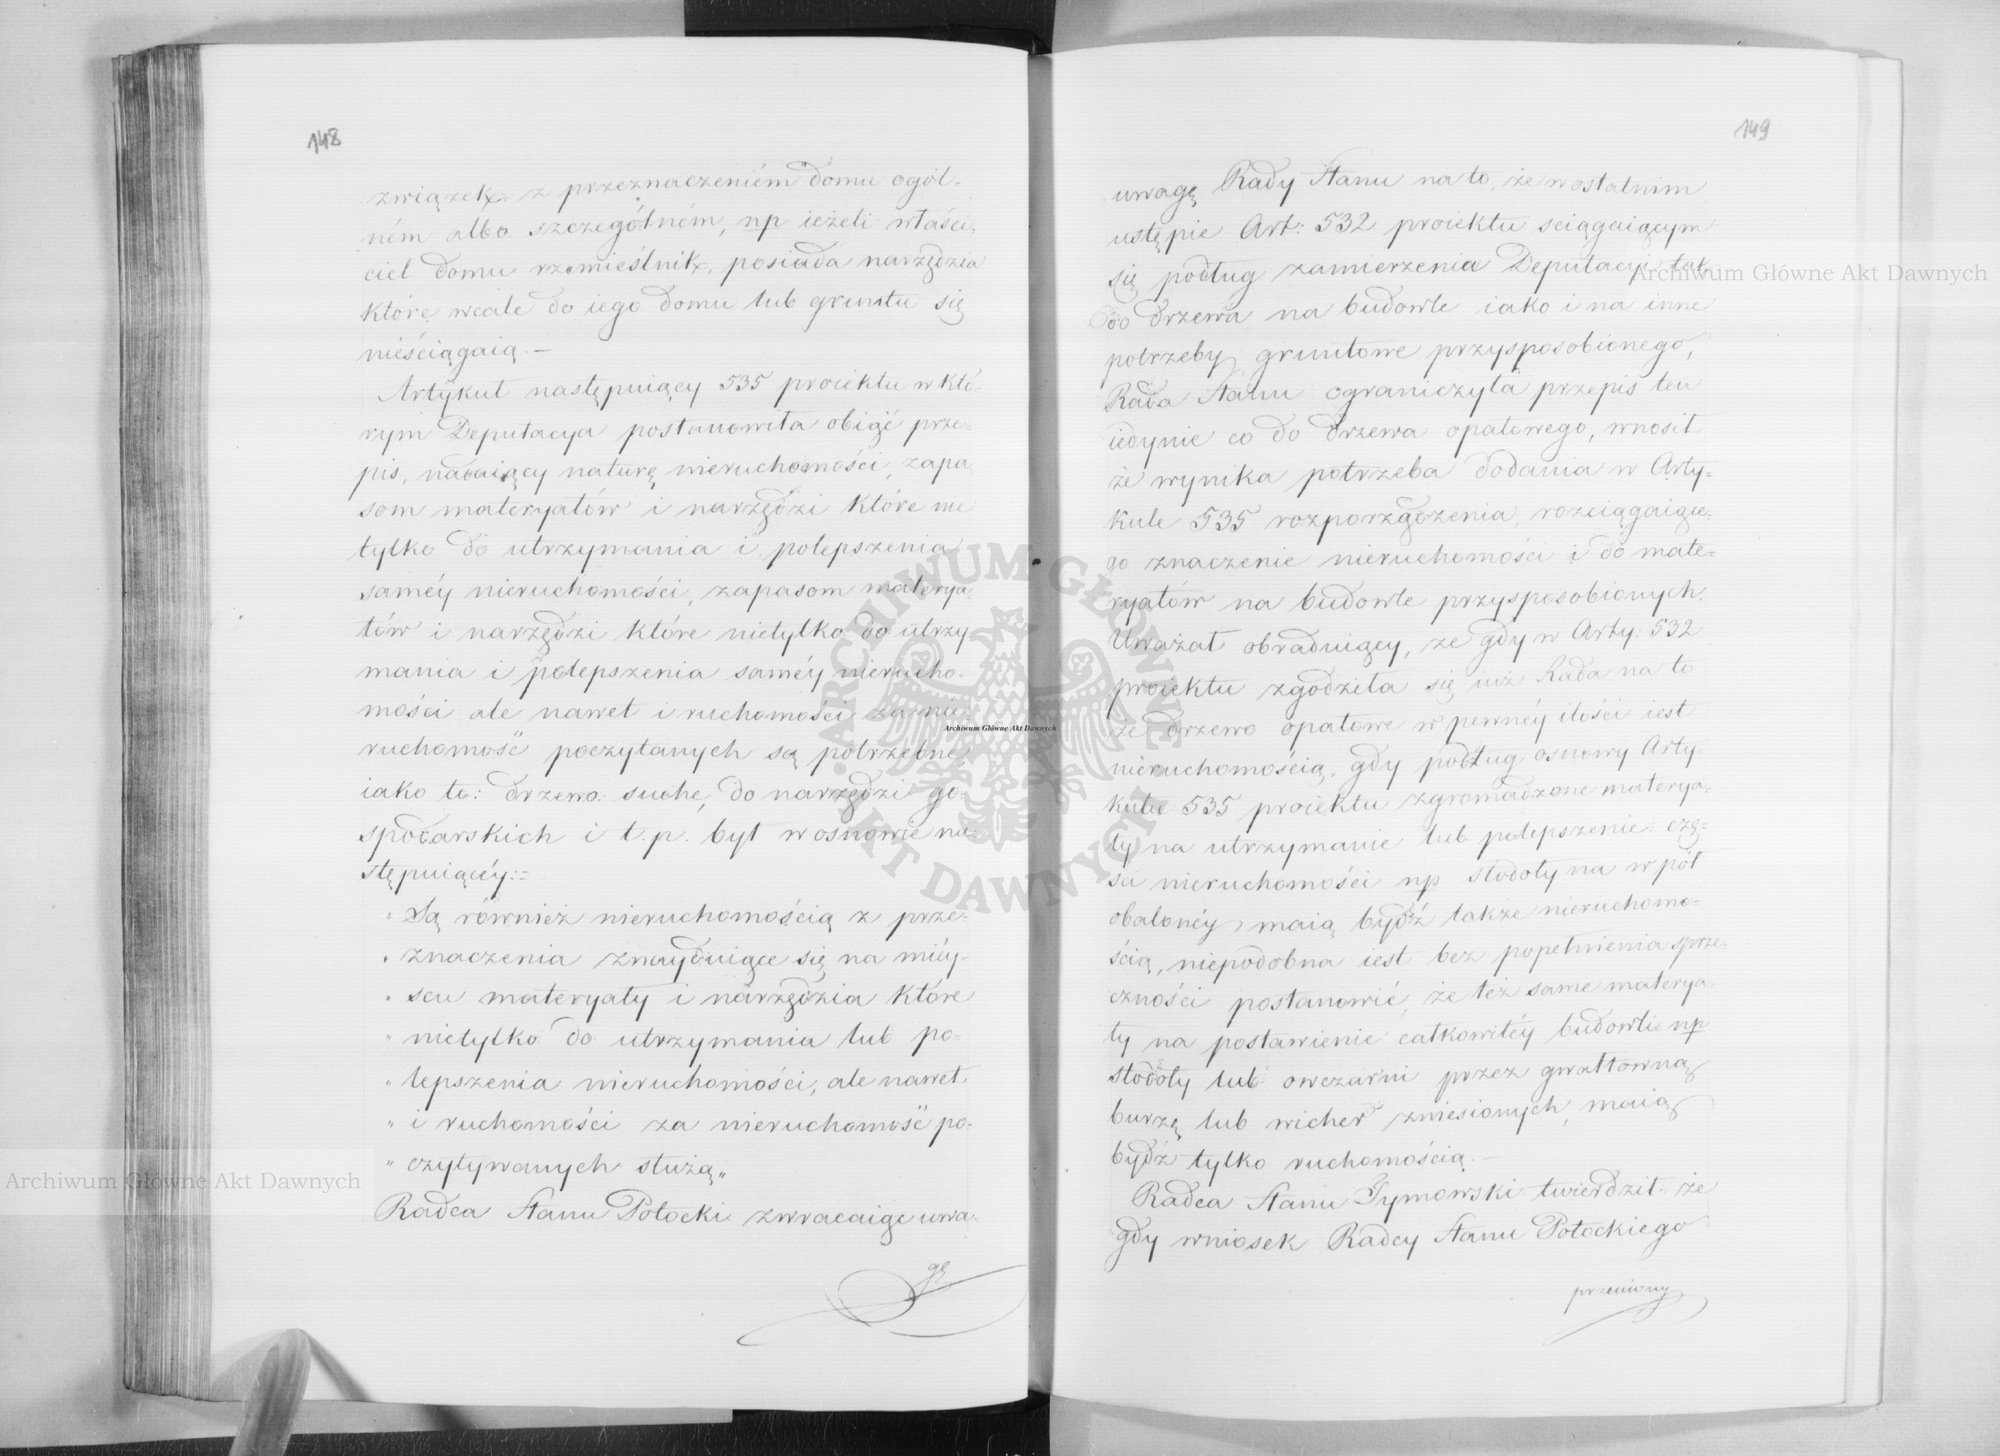 148
związek z przeznaczeniém domu ogól-
ném albo szczególném, np ieżeli właści-
ciel domu rzemieślnik, posiada narzędzia
które wcale do iego domu lub gruntu się
nieściągaią. —
Artykuł następuiący 535 proiektu w któ-
rym Deputacya postanowiła obiąć prze-
pis, nadaiący naturę nieruchomości, zapa-
som materyałów i narzędzi które nie
tylko do utrzymania i polepszenia
saméy nieruchomości, zapasom materya-
łów i narzędzi które nietylko do utrzy
mania i polepszenia saméy nierucho-
mości ale nawet i ruchomości za nie-
ruchomość poczytanych są potrzebne,
iako to: drzewo suche, do narzędzi go-
spodarskich i t.p. był w osnowie na-
stępuiącéy:=
" Są również nieruchomością z prze-
" znaczenia znayduiące się na miéy-
" scu materyały i narzędzia które
" nietylko do utrzymania lub po-
" lepszenia nieruchomości, ale nawet
" i ruchomości za nieruchomość po-
" czytywanych służą"
Radca Stanu Potocki zwracaiąc uwa-
gę
149
uwagę Rady Stanu na to, że w ostatnim
ustępie Art: 532 proiektu sciągaiącym
się podług zamierzenia Deputacyi tak
do drzewa na budowle iako i na inne
potrzeby gruntowe przysposobionego,
Rada Stanu ograniczyła przepis ten
iedynie co do drzewa opałowego, wnosił
że wynika potrzeba dodania w Arty-
kule 535 rozporządzenia, rozciągaiące-
go znaczenie nieruchomości i do mate-
ryałów na budowle przysposobionych.
Uważał obraduiący, że gdy w Arty: 532
proiektu zgodziła się iuż Rada na to
że drzewo opałowe w pewnéy ilości iest
nieruchomością, gdy podług osnowy Arty-
kułu 535 proiektu zgromadzone materya-
ły na utrzymanie lub polepszenie czę-
ści nieruchomości np stodoły na w pół
obalonéy maią bydź także nieruchomo-
ścią, niepodobna iest bez popełnienia sprze-
czności postanowić, że też same materya-
ły na postawienie całkowitéy budowli np
stodoły lub owczarni przez gwałtowną
burzę lub wicher zniesionych, maią
bydź tylko ruchomością. —
Radca Stanu Tymowski twierdził że
gdy wniosek Radcy Stanu Potockiego
przeniony
Archiwum Główne Akt Dawnych
Archiwum Główne Akt Dawnych
Archiwum Główne Akt Dawnych
ARCHIWUM GŁÓWNE AKT DAWNYCH